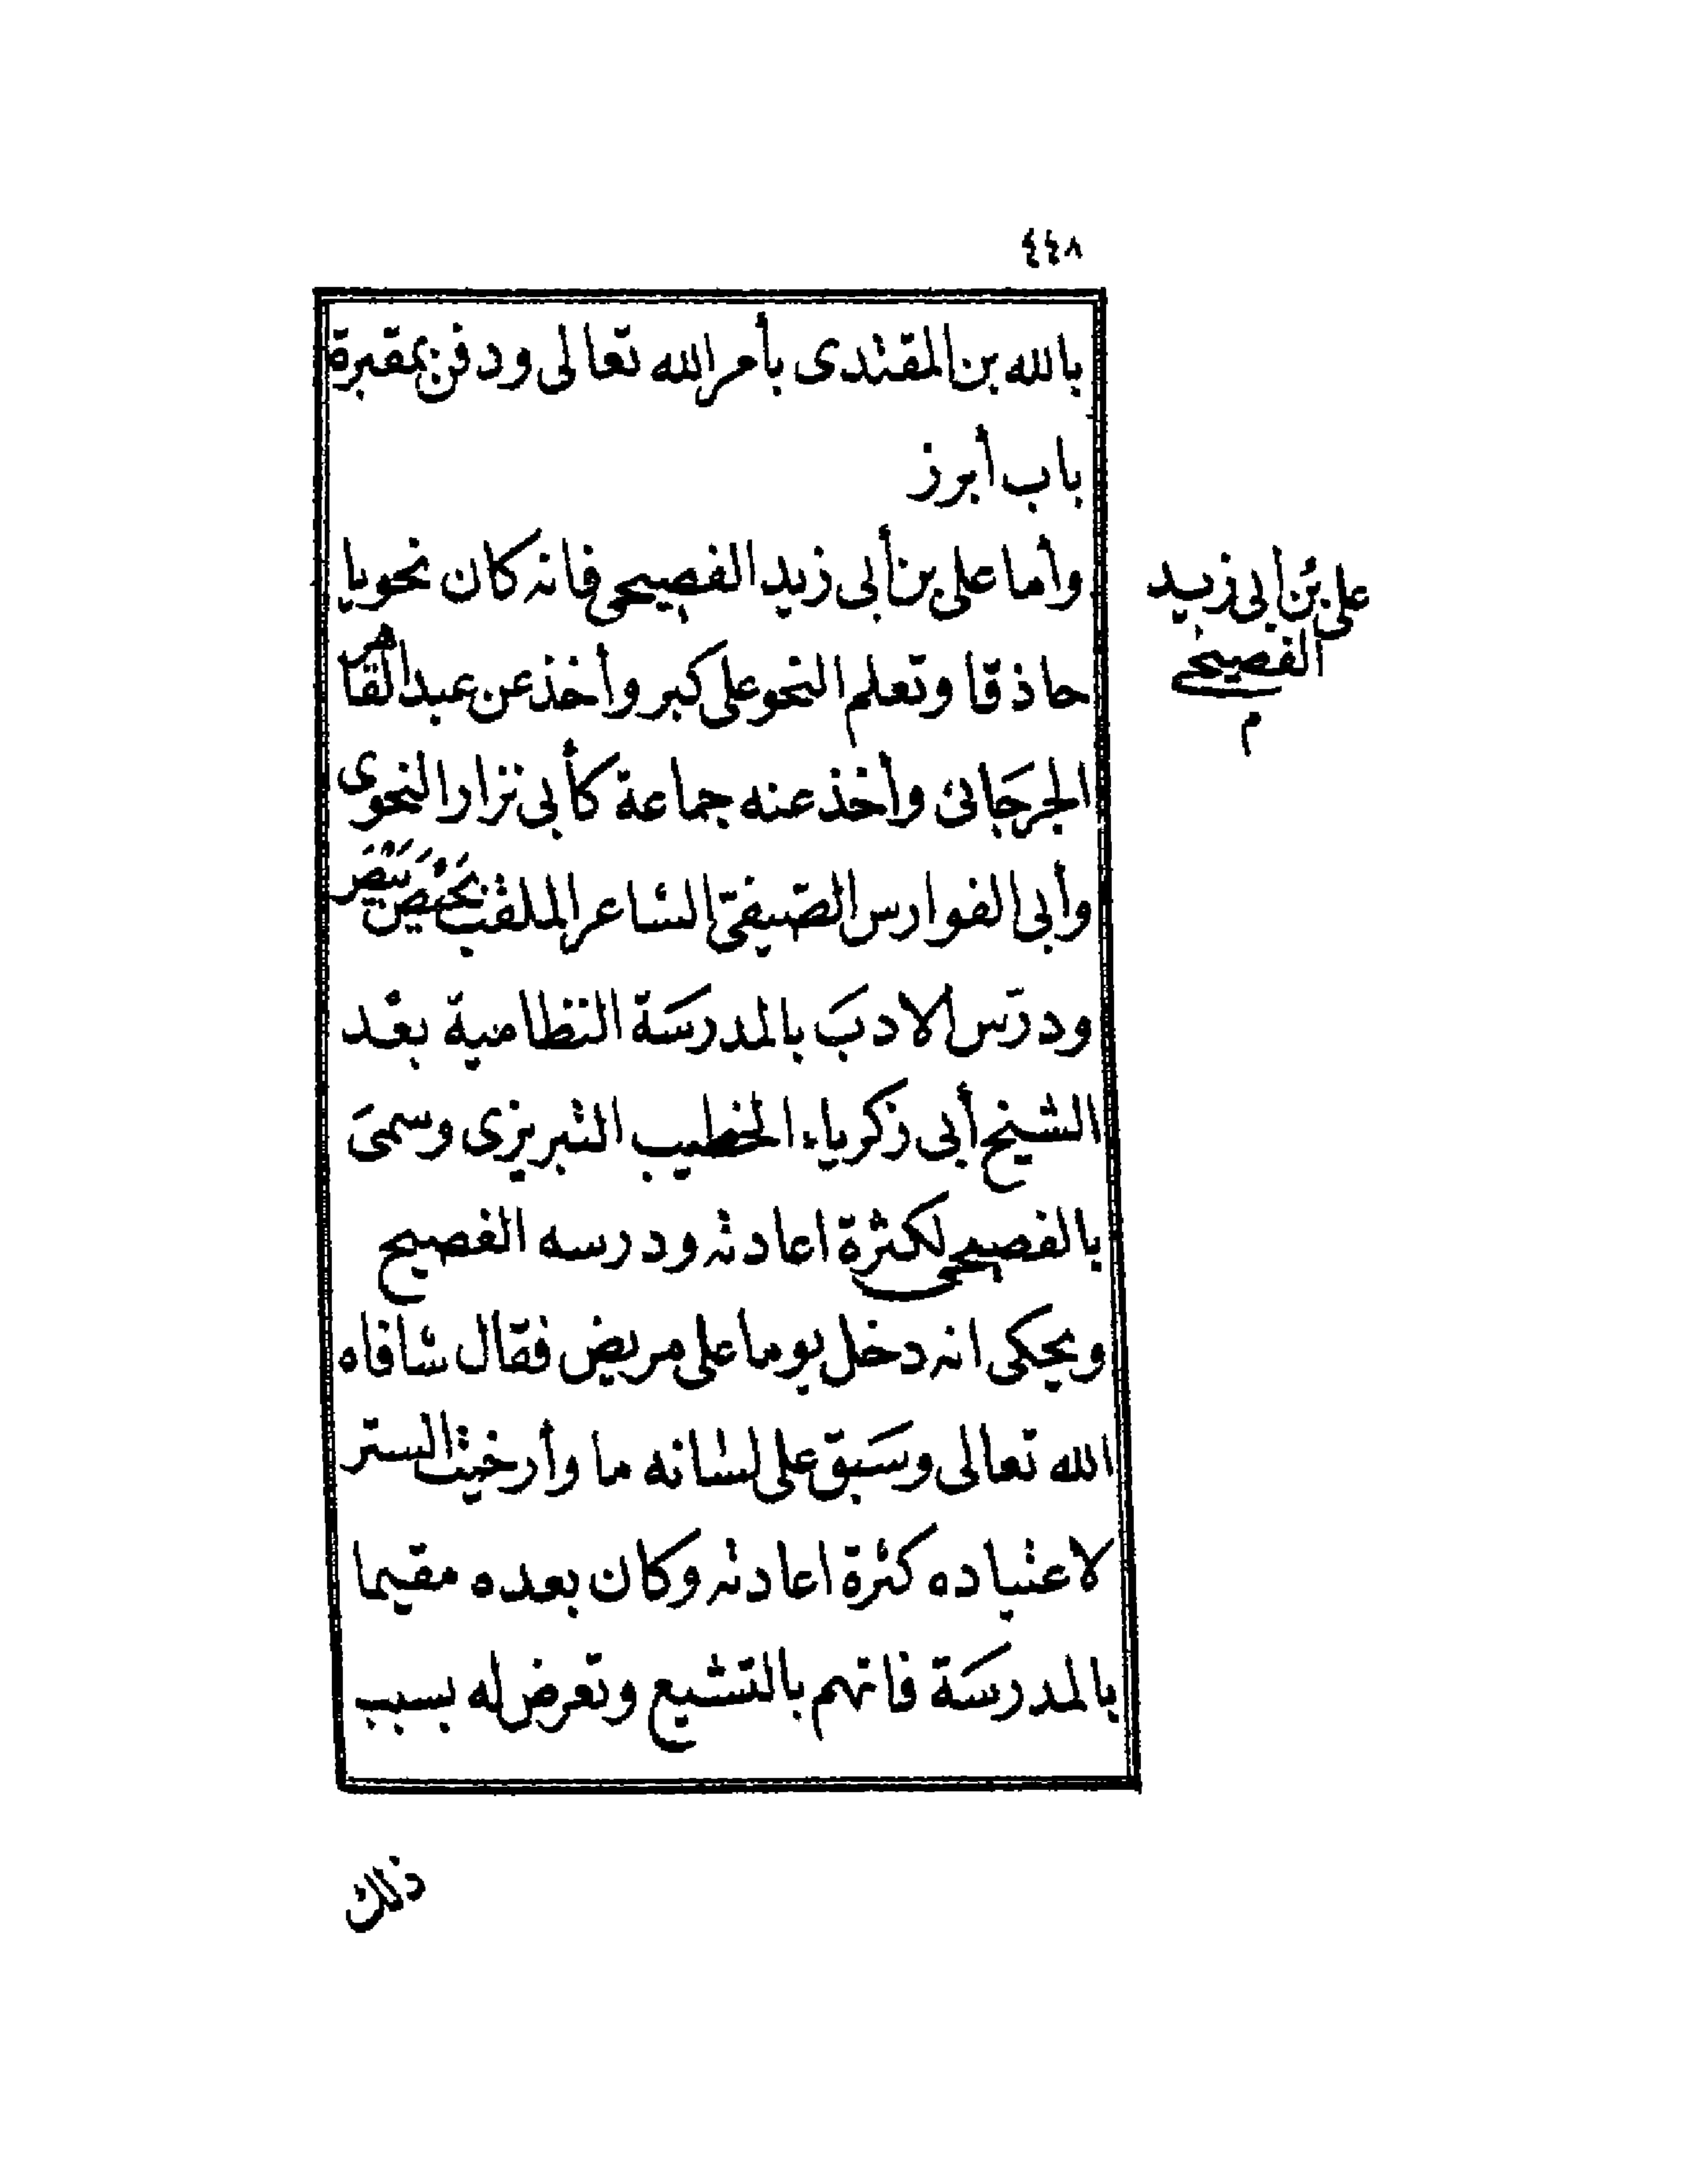 ٤٤٨
بالله بن المقتدى بأمر الله تعالى ودفن بمقبرة
باب أبرز
وأما على بن أبى زيد الفصيحى فانه كان نحويا
حاذقا وتعلم النحو على كبر وأخذ عن عبد القاهر
الجرجانى وأخذ عنه جماعة كأبى نزار النحوى
وأبى الفوارس الصيفىّ الشاعر الملقب بَحيْصَ بَيْصَ
ودرّس الادبَ بالمدرسَة النظامية بعْد
الشيخ أبى زكرياء الخطيب التبريزى وسمىَ
بالفصيحى لكثرة اعادته ودرسه الفصيح
ويحكى انه دخل يوما على مريض فقال شافاه
الله تعالى وسَبق على لسانه ما وأرخيت الستر
لاعتياده كثرة اعادته وكان بعده مقيما
بالمدرسَة فاتهم بالتشيع وتعرض له بسبب
ذلك
على بن ابى زيد
الفصيحى
م